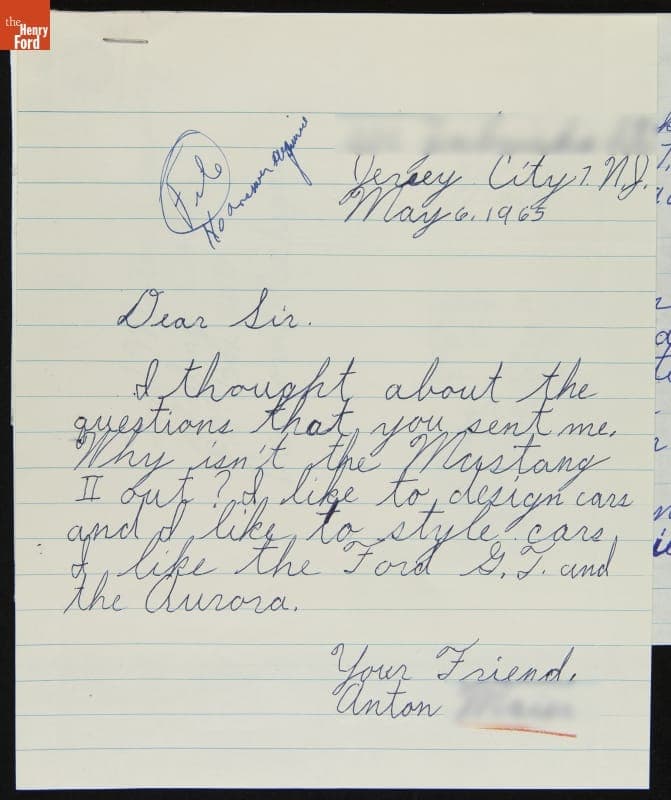 the
Henry
Ford
File
No answer required
Jersey City 7. N.J.
May 6, 1965
Dear Sir.
I thought about the
questions that you sent me.
Why isn't the Mustang
II out? I like to design cars
and I like to style cars.
I like the Ford G.T. and
the Aurora.
Your Friend,
Anton